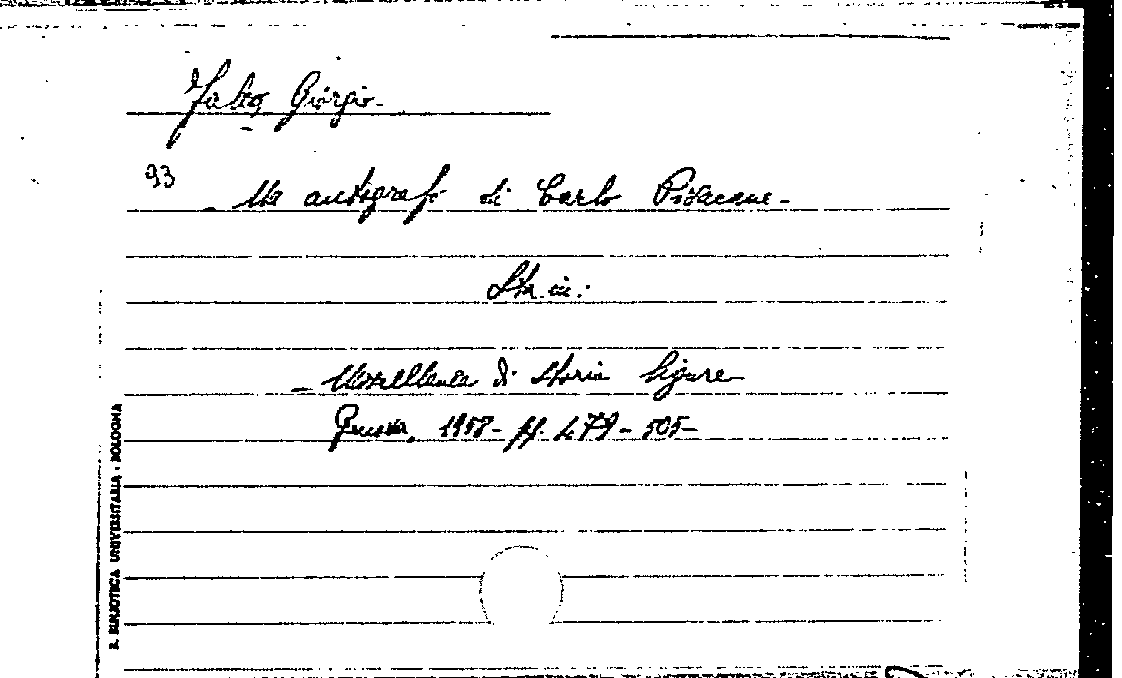 Falco Giorgio-
93
- Un autografo di Carlo Pisacane -
Sta in:
- Miscellanea di Storia Ligure
Genova, 1958 - pp. 479 - 505 -
R. BIBLIOTECA UNIVERSITARIA - BOLOGNA